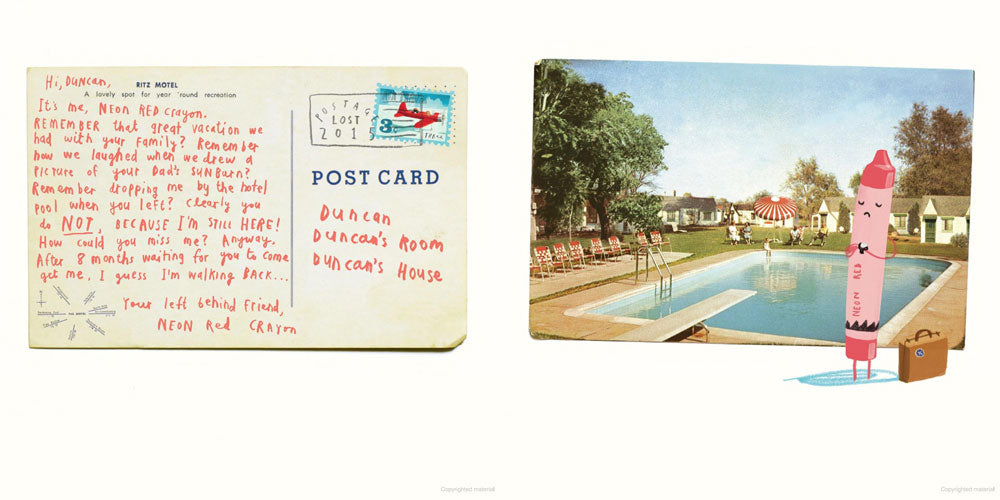 Hi, DUNCAN,
RITZ MOTEL
A lovely spot for year 'round recreation
It's me, NEON RED crayon.
REMEMBER that great vacation we
had with your Family? Remember
how we laughed when we drew a
picture of your Dad's SUNBurn?
Remember dropping me by the hotel
pool when you left? Clearly you
do NOT, BECAUSE I'M STILL HERE!
How could you miss me? Anyway.
After 8 months waiting for you to come
get me, I guess I'm walking BACK...
Your left behind friend,
NEON Red CRAYon
POSTAGE
LOST
201
3¢
POST CARD
Duncan
Duncan's Room
Duncan's House
NEON RED
Copyrighted material
Copyrighted material